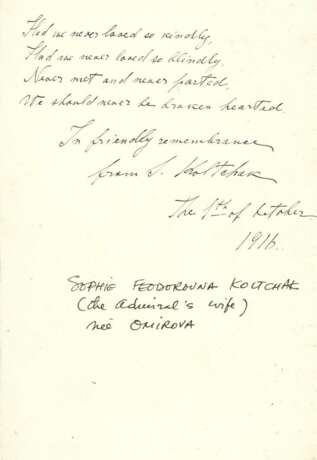 Had we never loved so kindly,
Had we never loved so blindly,
Never met and never parted,
We should never be broken hearted.
In friendly remembrance
from S. Koltchak
The 1th of October
1916.
SOPHIE FEODOROVNA KOLTCHAK
(the admiral's wife)
née OMIROVA